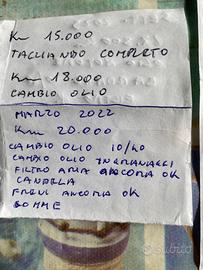 Km 15.000
TAGLIANDO COMPLETO
Km 18.000
CAMBIO OLIO
MARZO 2022
Km 20.000
CAMBIO OLIO 10/40
CAMBIO OLIO INGRANAGGI
FILTRO ARIA ANCORA OK
CANDELA
FRENI ANCORA OK
GOMME
subito